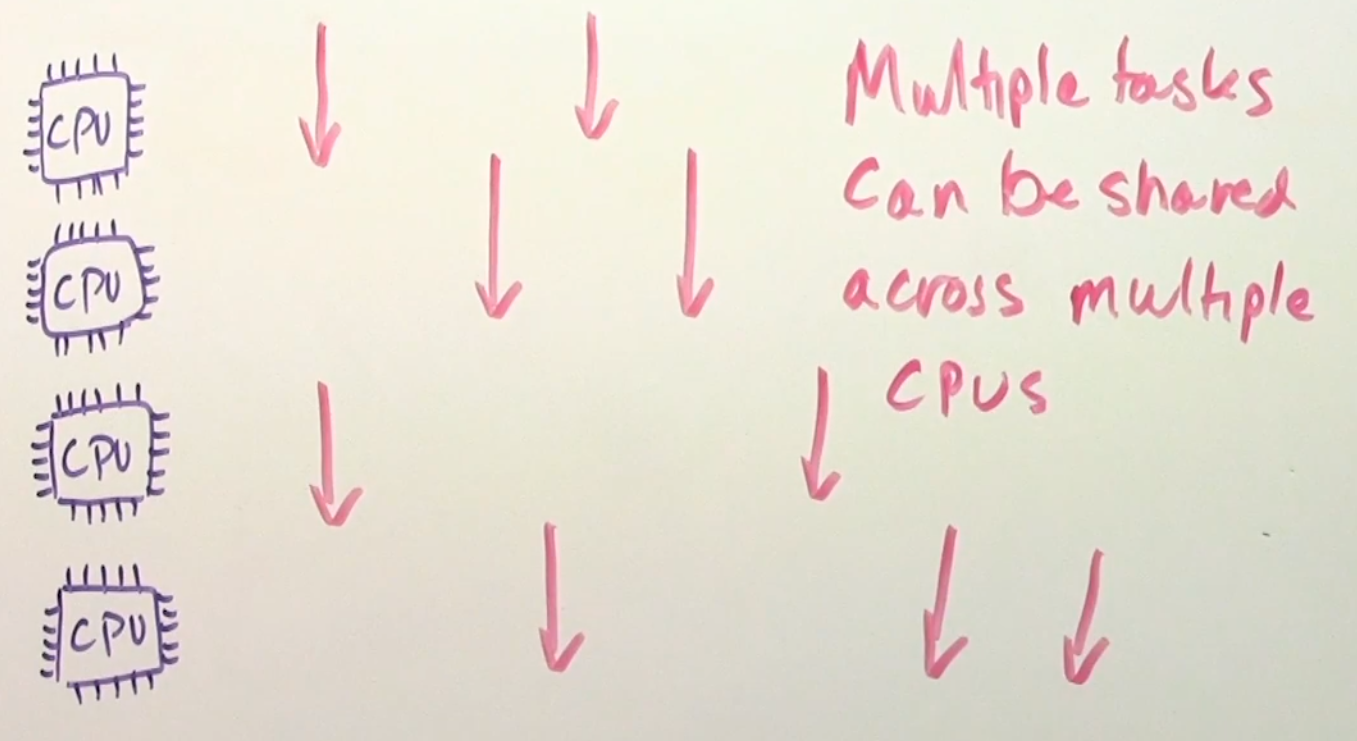 CPU
CPU
CPU
CPU
Multiple tasks
Can be shared
across multiple
CPUs